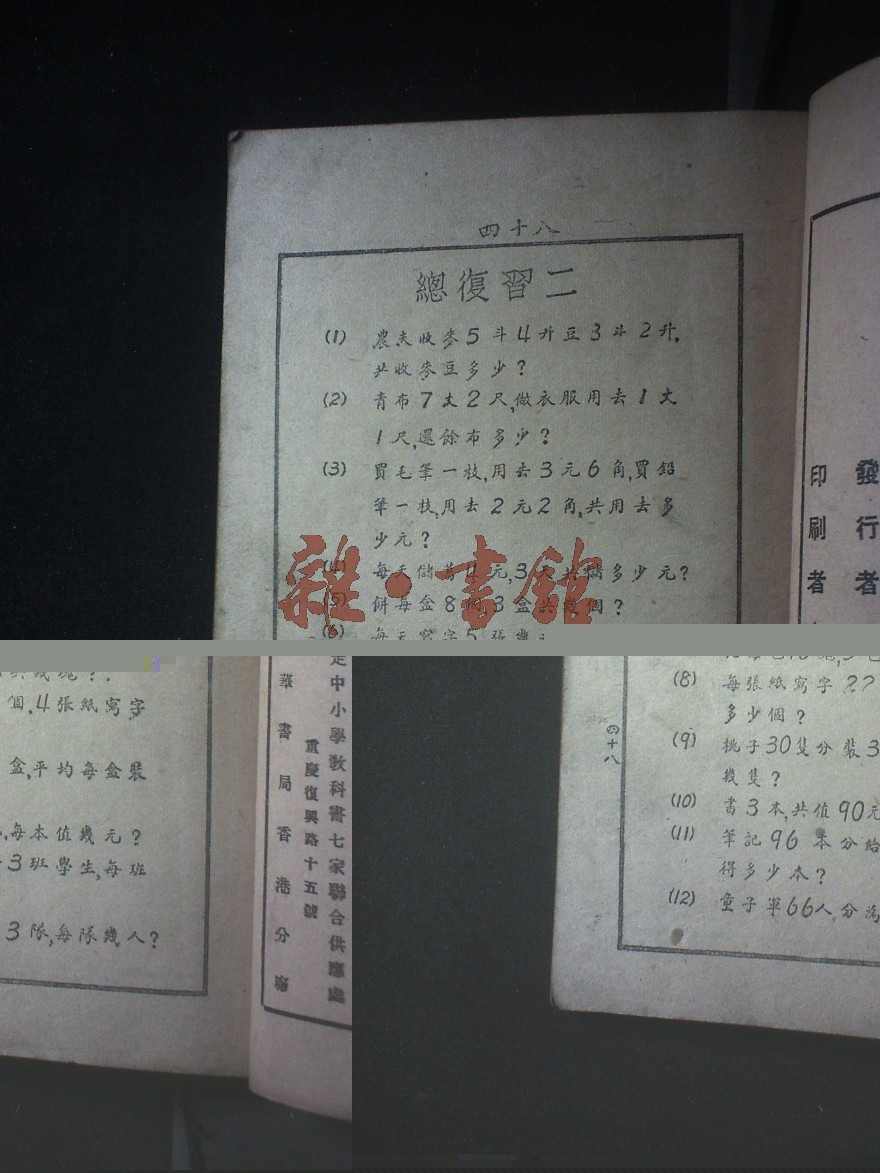 四十八
總復習二
(1) 農夫收麥5斗4升豆3斗2升.
共收麥豆多少?
(2) 青布7丈2尺,做衣服用去1丈
1尺,還餘布多少?
(3) 買毛筆一枝,用去3元6角,買鉛
筆一枝,用去2元2角,共用去多
少元?
(4) 每天儲蓄4元,3天共儲多少元?
(5) 餅每盒8個,3盒共幾個?
(6) 每天寫字5張
雜·書館
發行者
印刷者
個.4張紙寫字
盒,平均每盒裝
每本值幾元?
3班學生,每班
3隊,每隊幾人?
中小學教科書七家聯合供應處
重慶復興路十五號
華書局香港分廠
四十八
(8) 每張紙寫字22
多少個?
(9) 桃子30隻分裝3
幾隻?
(10) 書3本,共值90元
(11) 筆記96本分給
得多少本?
(12) 童子軍66人,分為